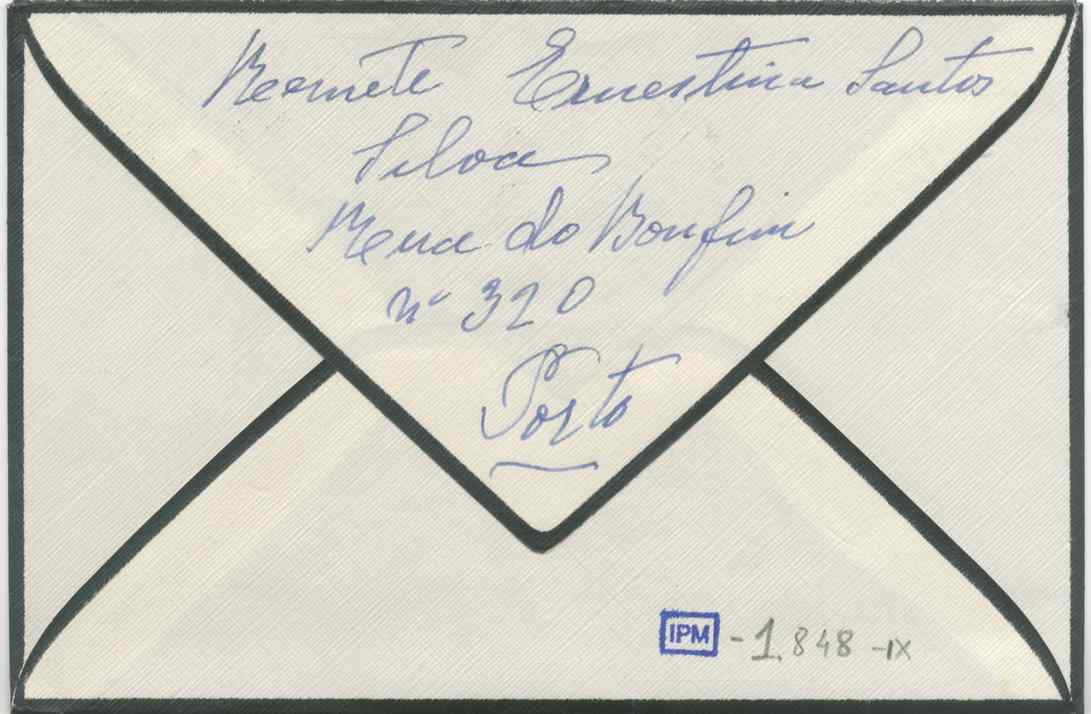 Remete Ernestina Santos
Silva
Rua do Bonfim
nº 320
Porto
IPM - 1.848 - IX